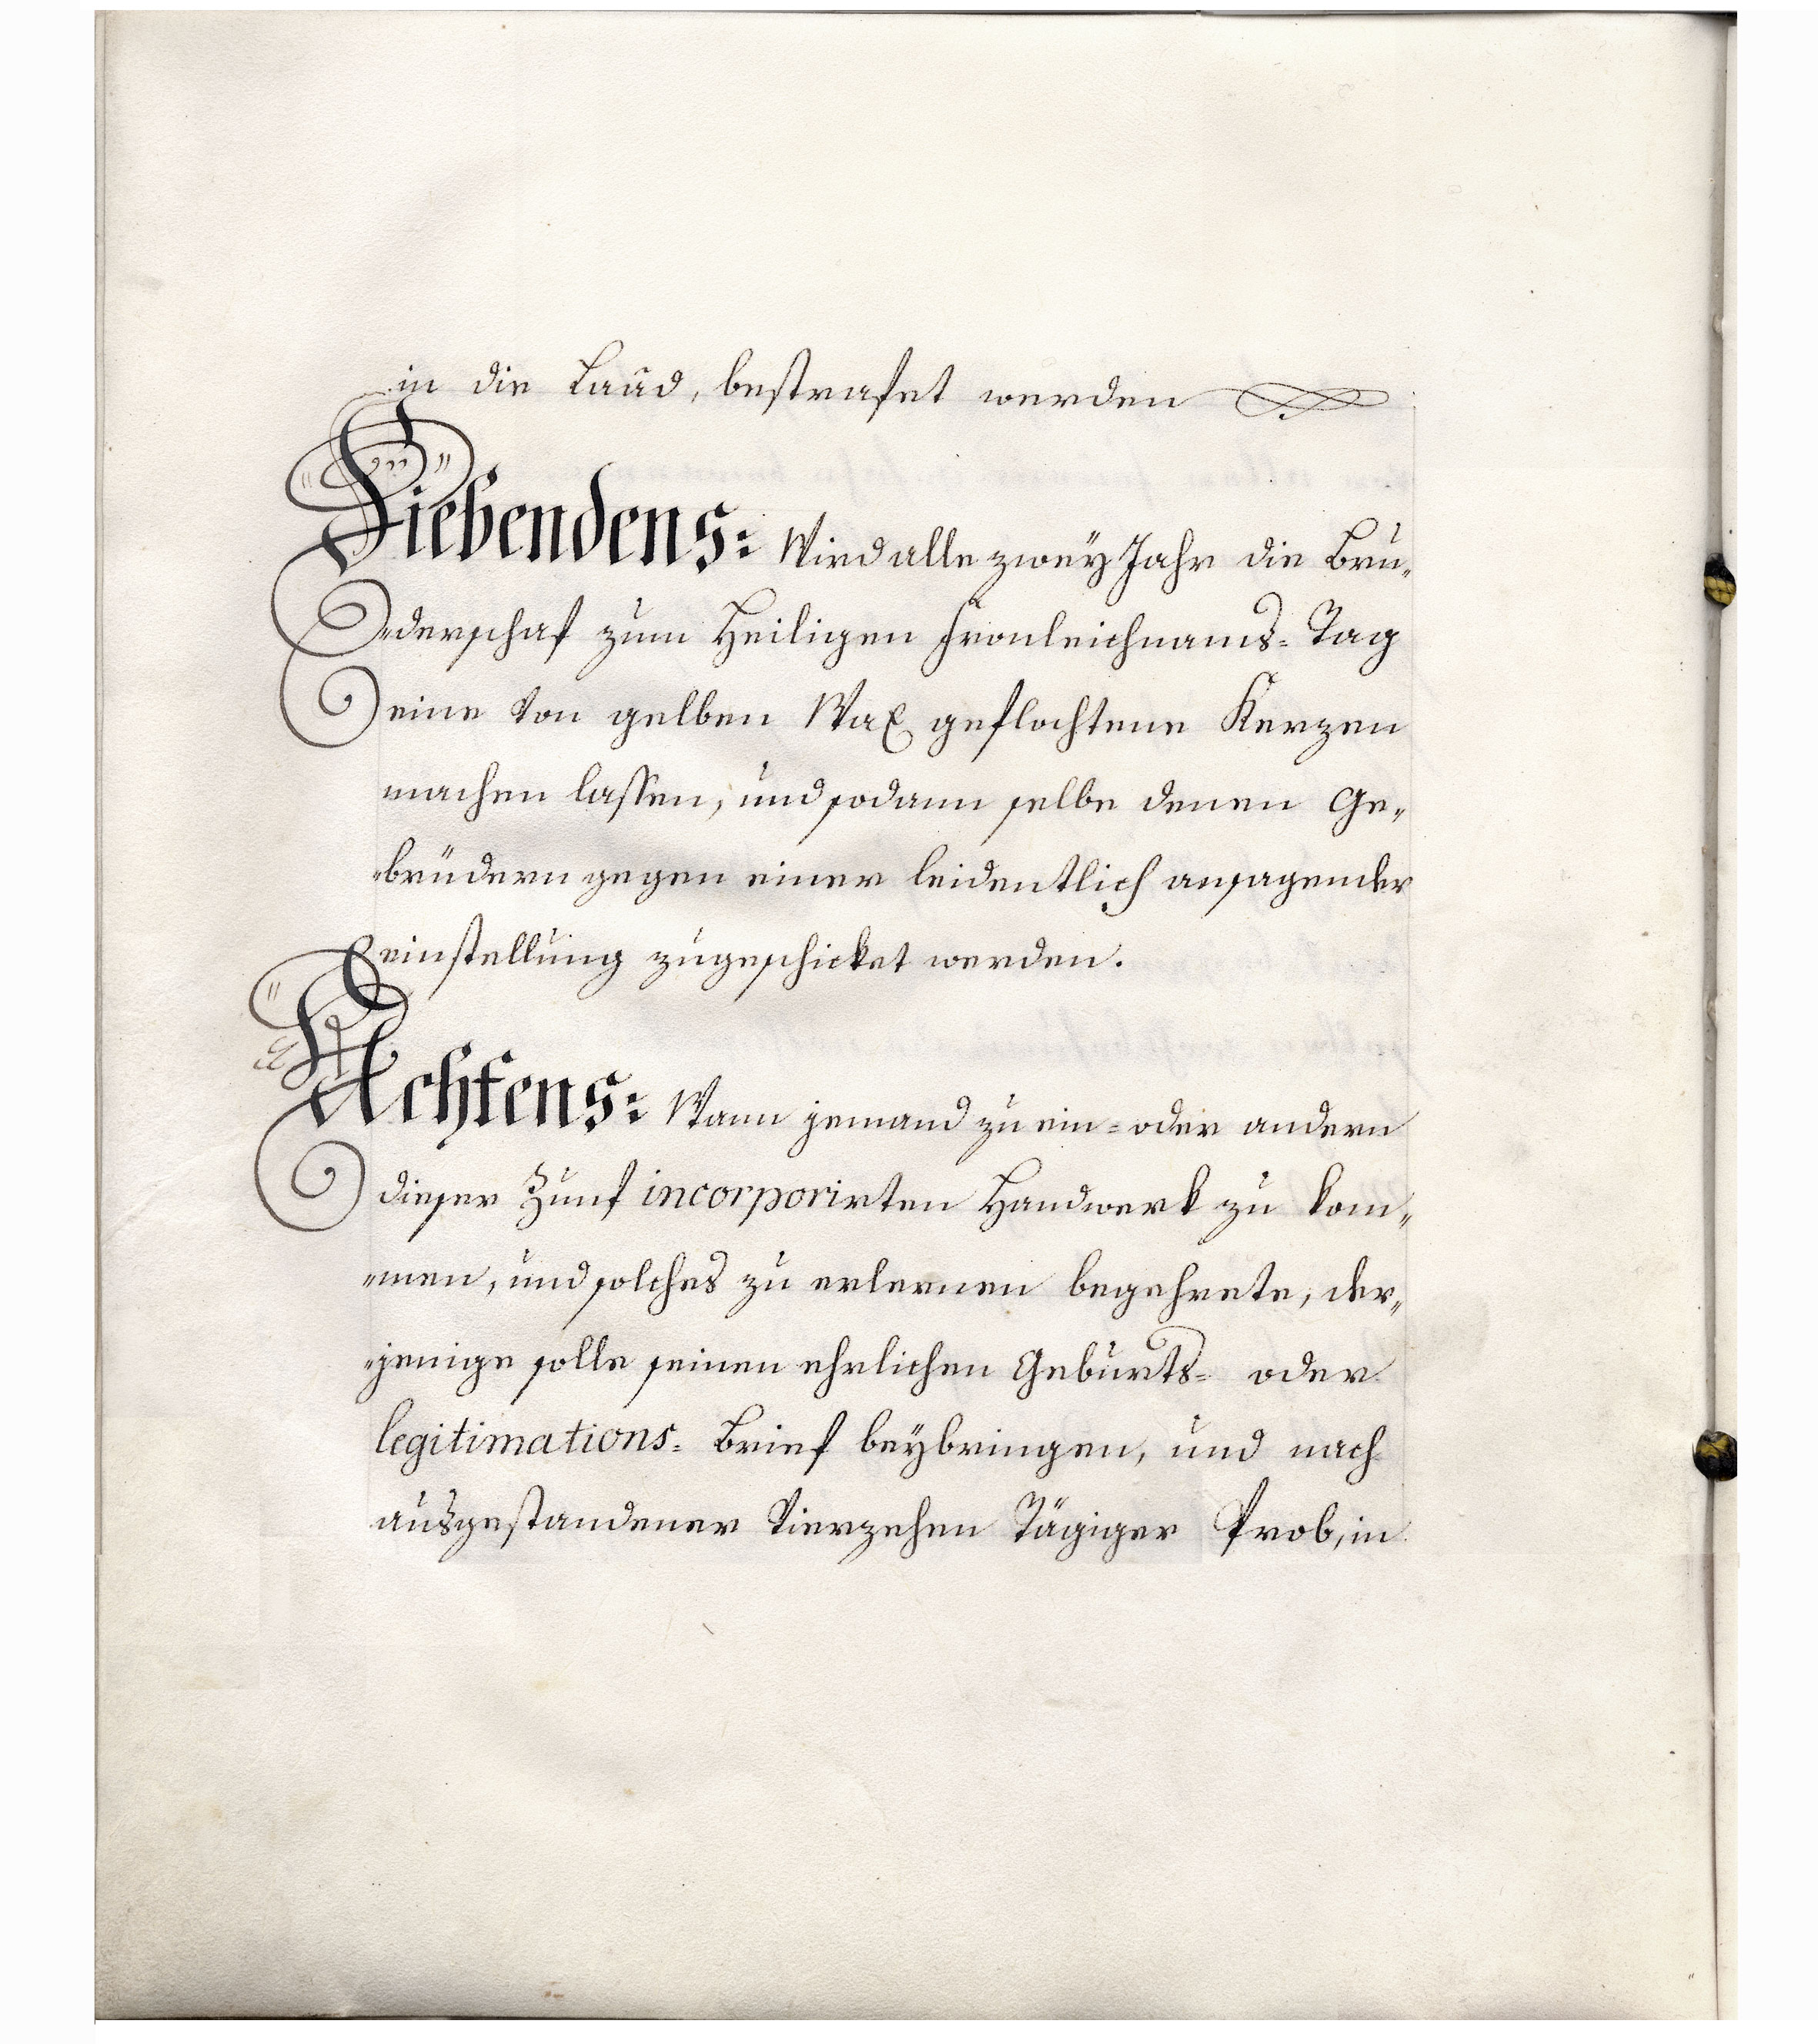 in die Laad, bestrafet werden
Siebendens: Wird alle zweÿ Jahr die Bru„
„derschaf zum Heiligen Fronleichnams= Tag
eine von gelben Wax geflochtene Kerzen
machen lassen, und sodann selbe denen Ge„
„brüdern gegen einer leidentlich ansagender
einstellung zugeschicket werden.
Achtens: Wann jemand zu ein= oder andern
dieser Zunf incorporirten Handwerk zu kom„
„men, und solches zu erlernen begehrete, der„
„jenige solle seinen ehrlichen Geburts= oder
legitimations= Brief beÿbringen, und nach
ausgestandener vierzehen Tägiger Prob, in